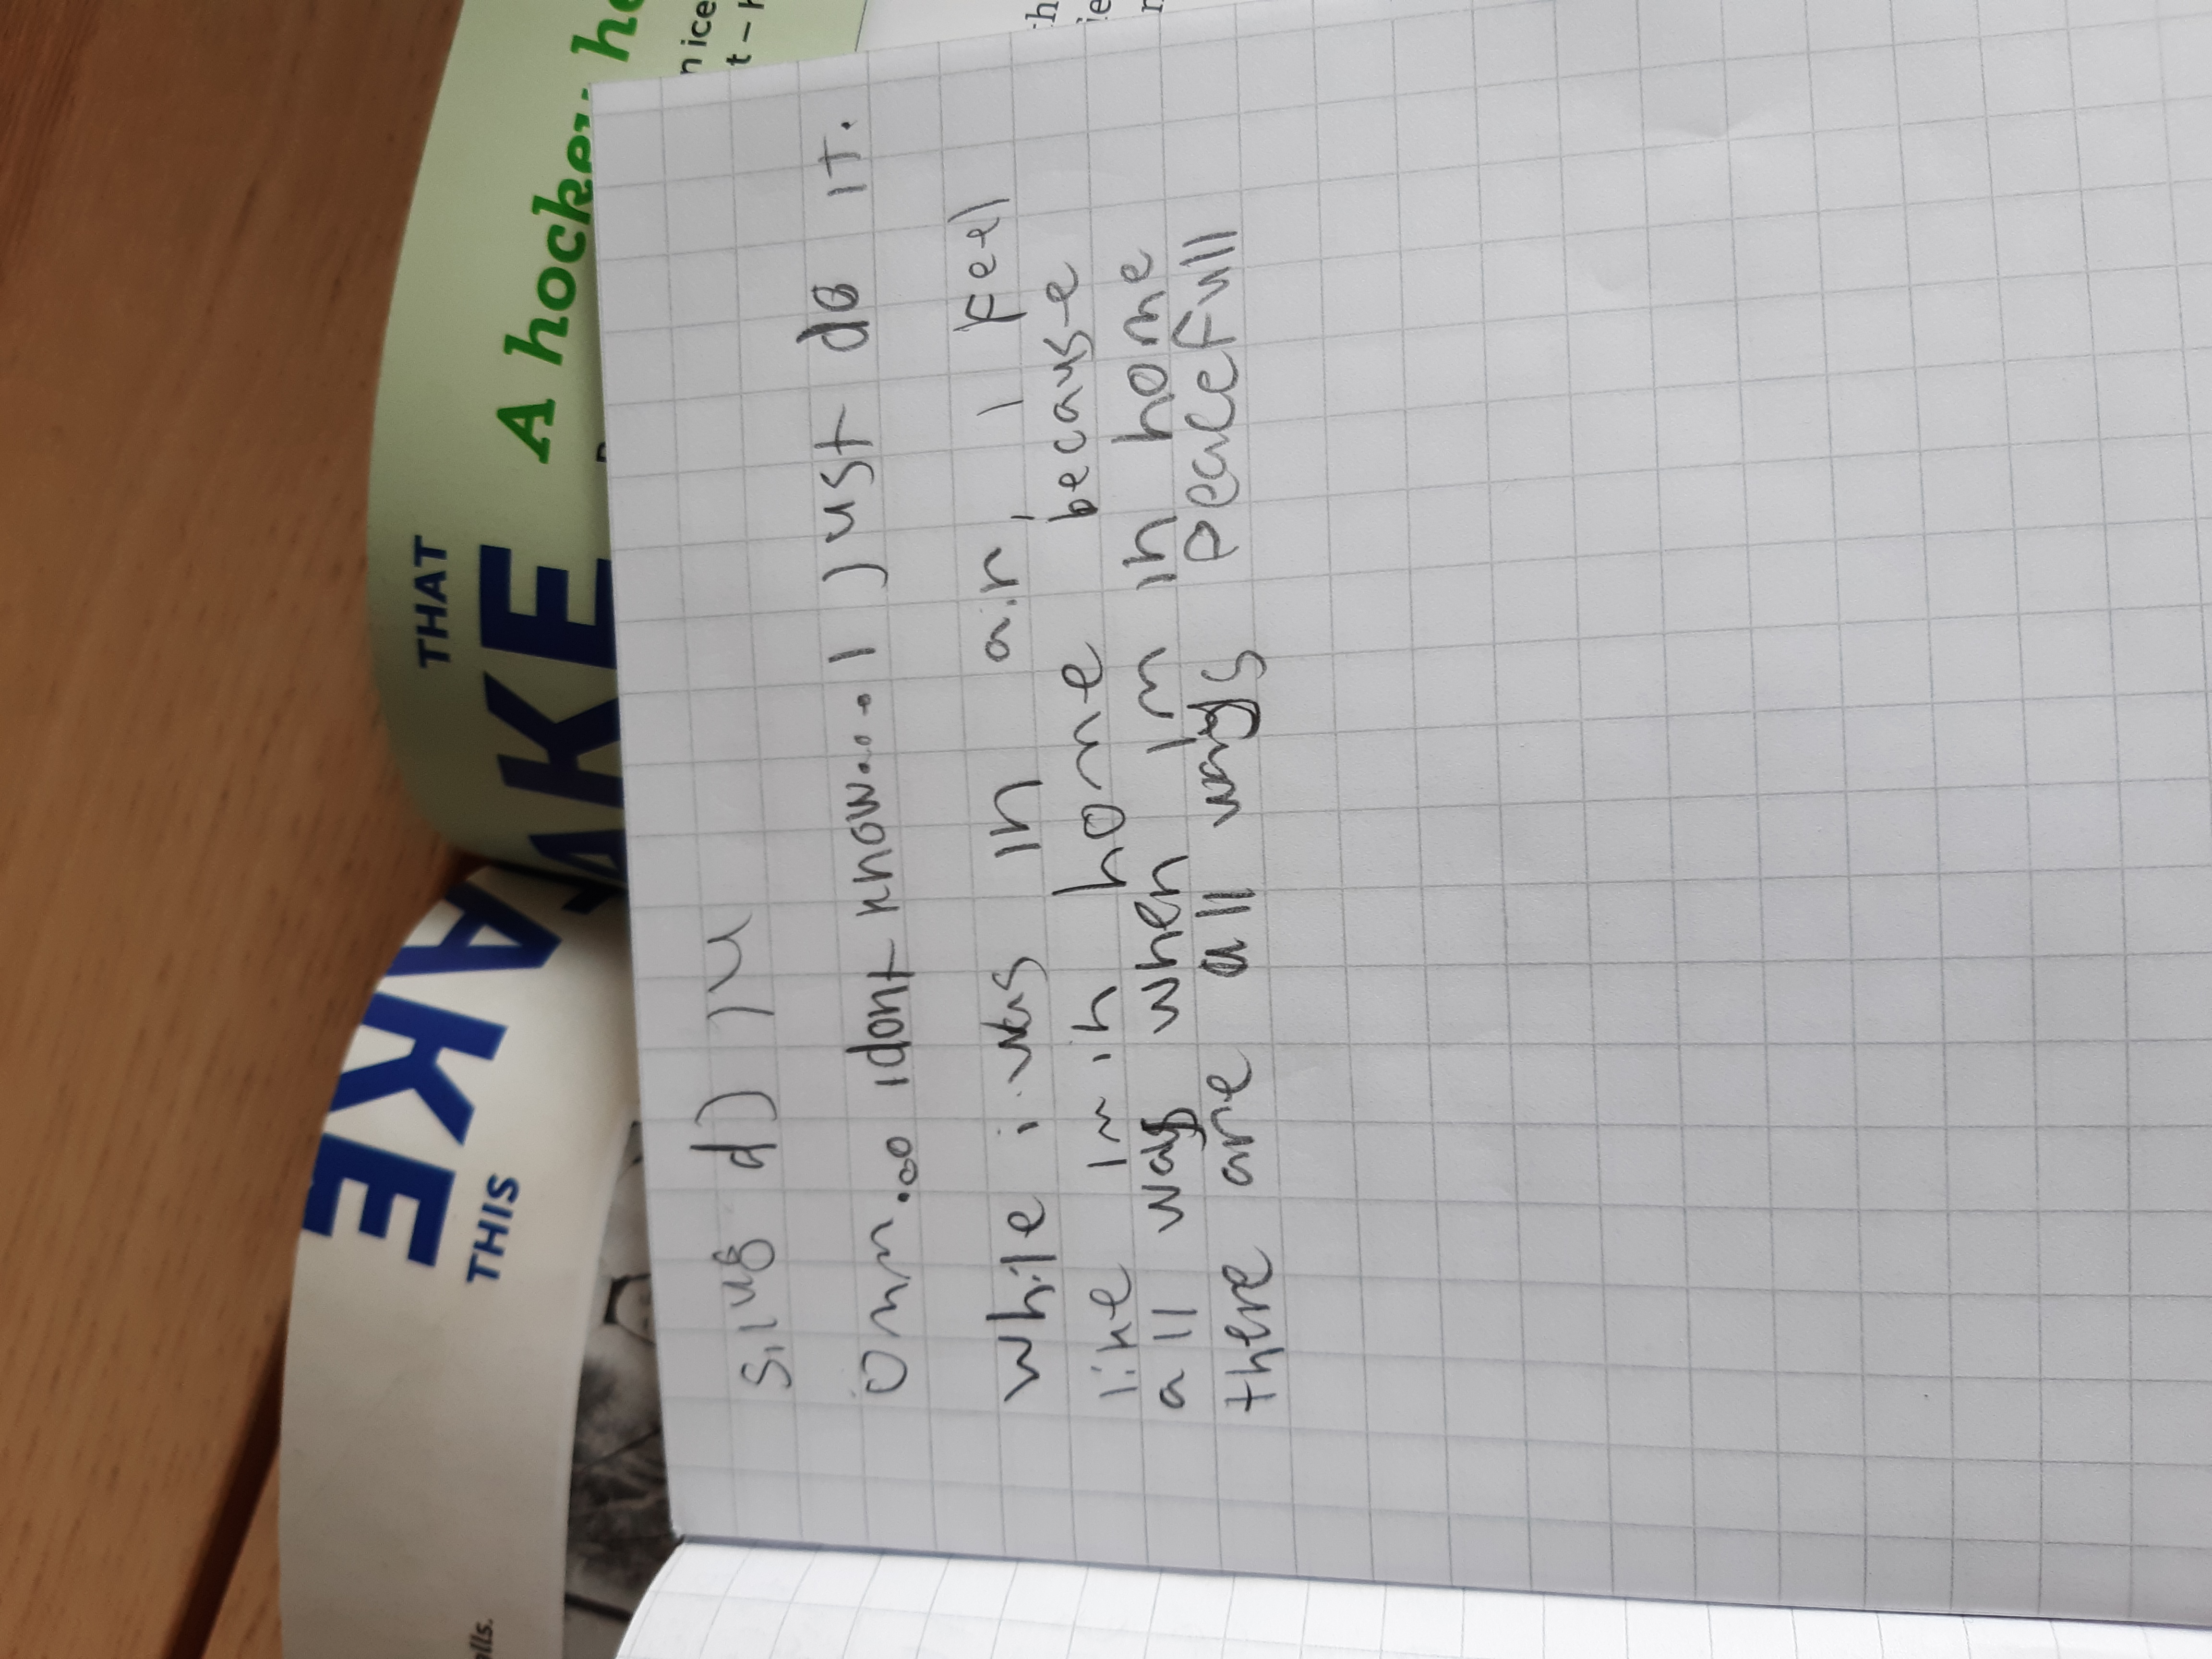 THAT
AKE
A hockey
n ice
t –
AKE
THIS
alls.
Omm... i dont know.... I just do it.
while i was in air, I feel
like Im in home because
all way when Im in home
there are all ways peacefull